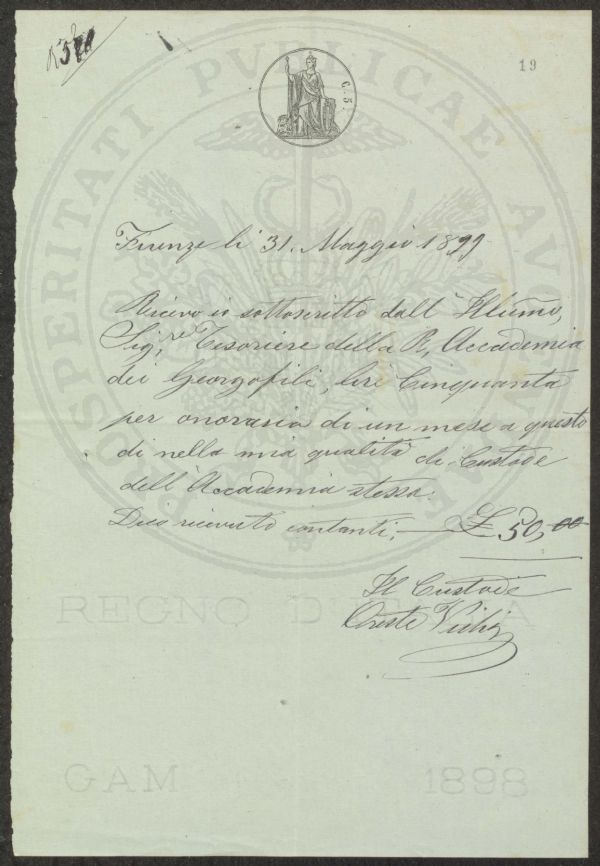 19
C. 5.
PROSPERITATI PVBLICAE AVGENDAE
Firenze li 31. Maggio 1899
Ricevo io sottoscritto dall' Illumo,
Sig,re Tesoriere della R, Accademia
dei Georgofili, lire Cinquanta
per onorario di un mese a questo
di nella mia qualità di Custode
dell' Accademia stessa.
Dico ricevuto contanti, £ 50,00
Il Custode
Oreste
REGNO D
GAM 1898